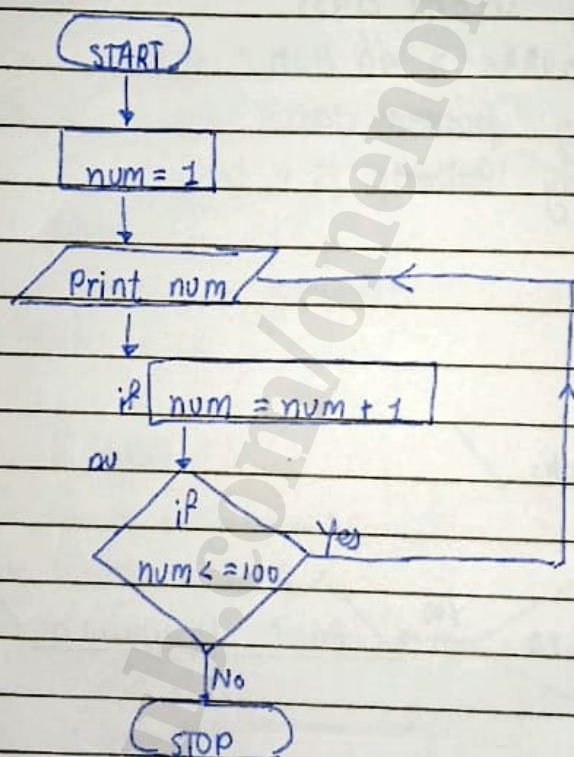 START
num = 1
Print num
if num = num + 1
if
Yes
num <= 100
No
STOP